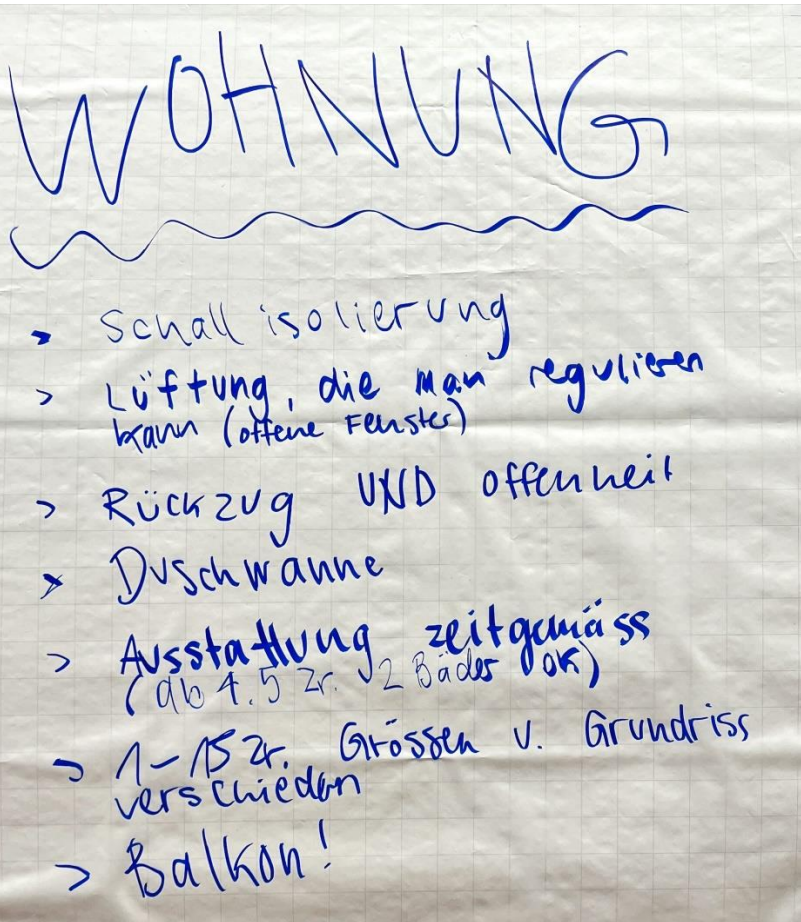 WOHNUNG
> Schallisolierung
> Lüftung, die man regulieren
kann (offene Fenster)
> Rückzug UND Offenheit
> Duschwanne
> Ausstattung zeitgemäss
(ab 4.5 Zr. 2 Bäder OK)
> 1-15 Zr. Grössen v. Grundriss
verschieden
> Balkon!